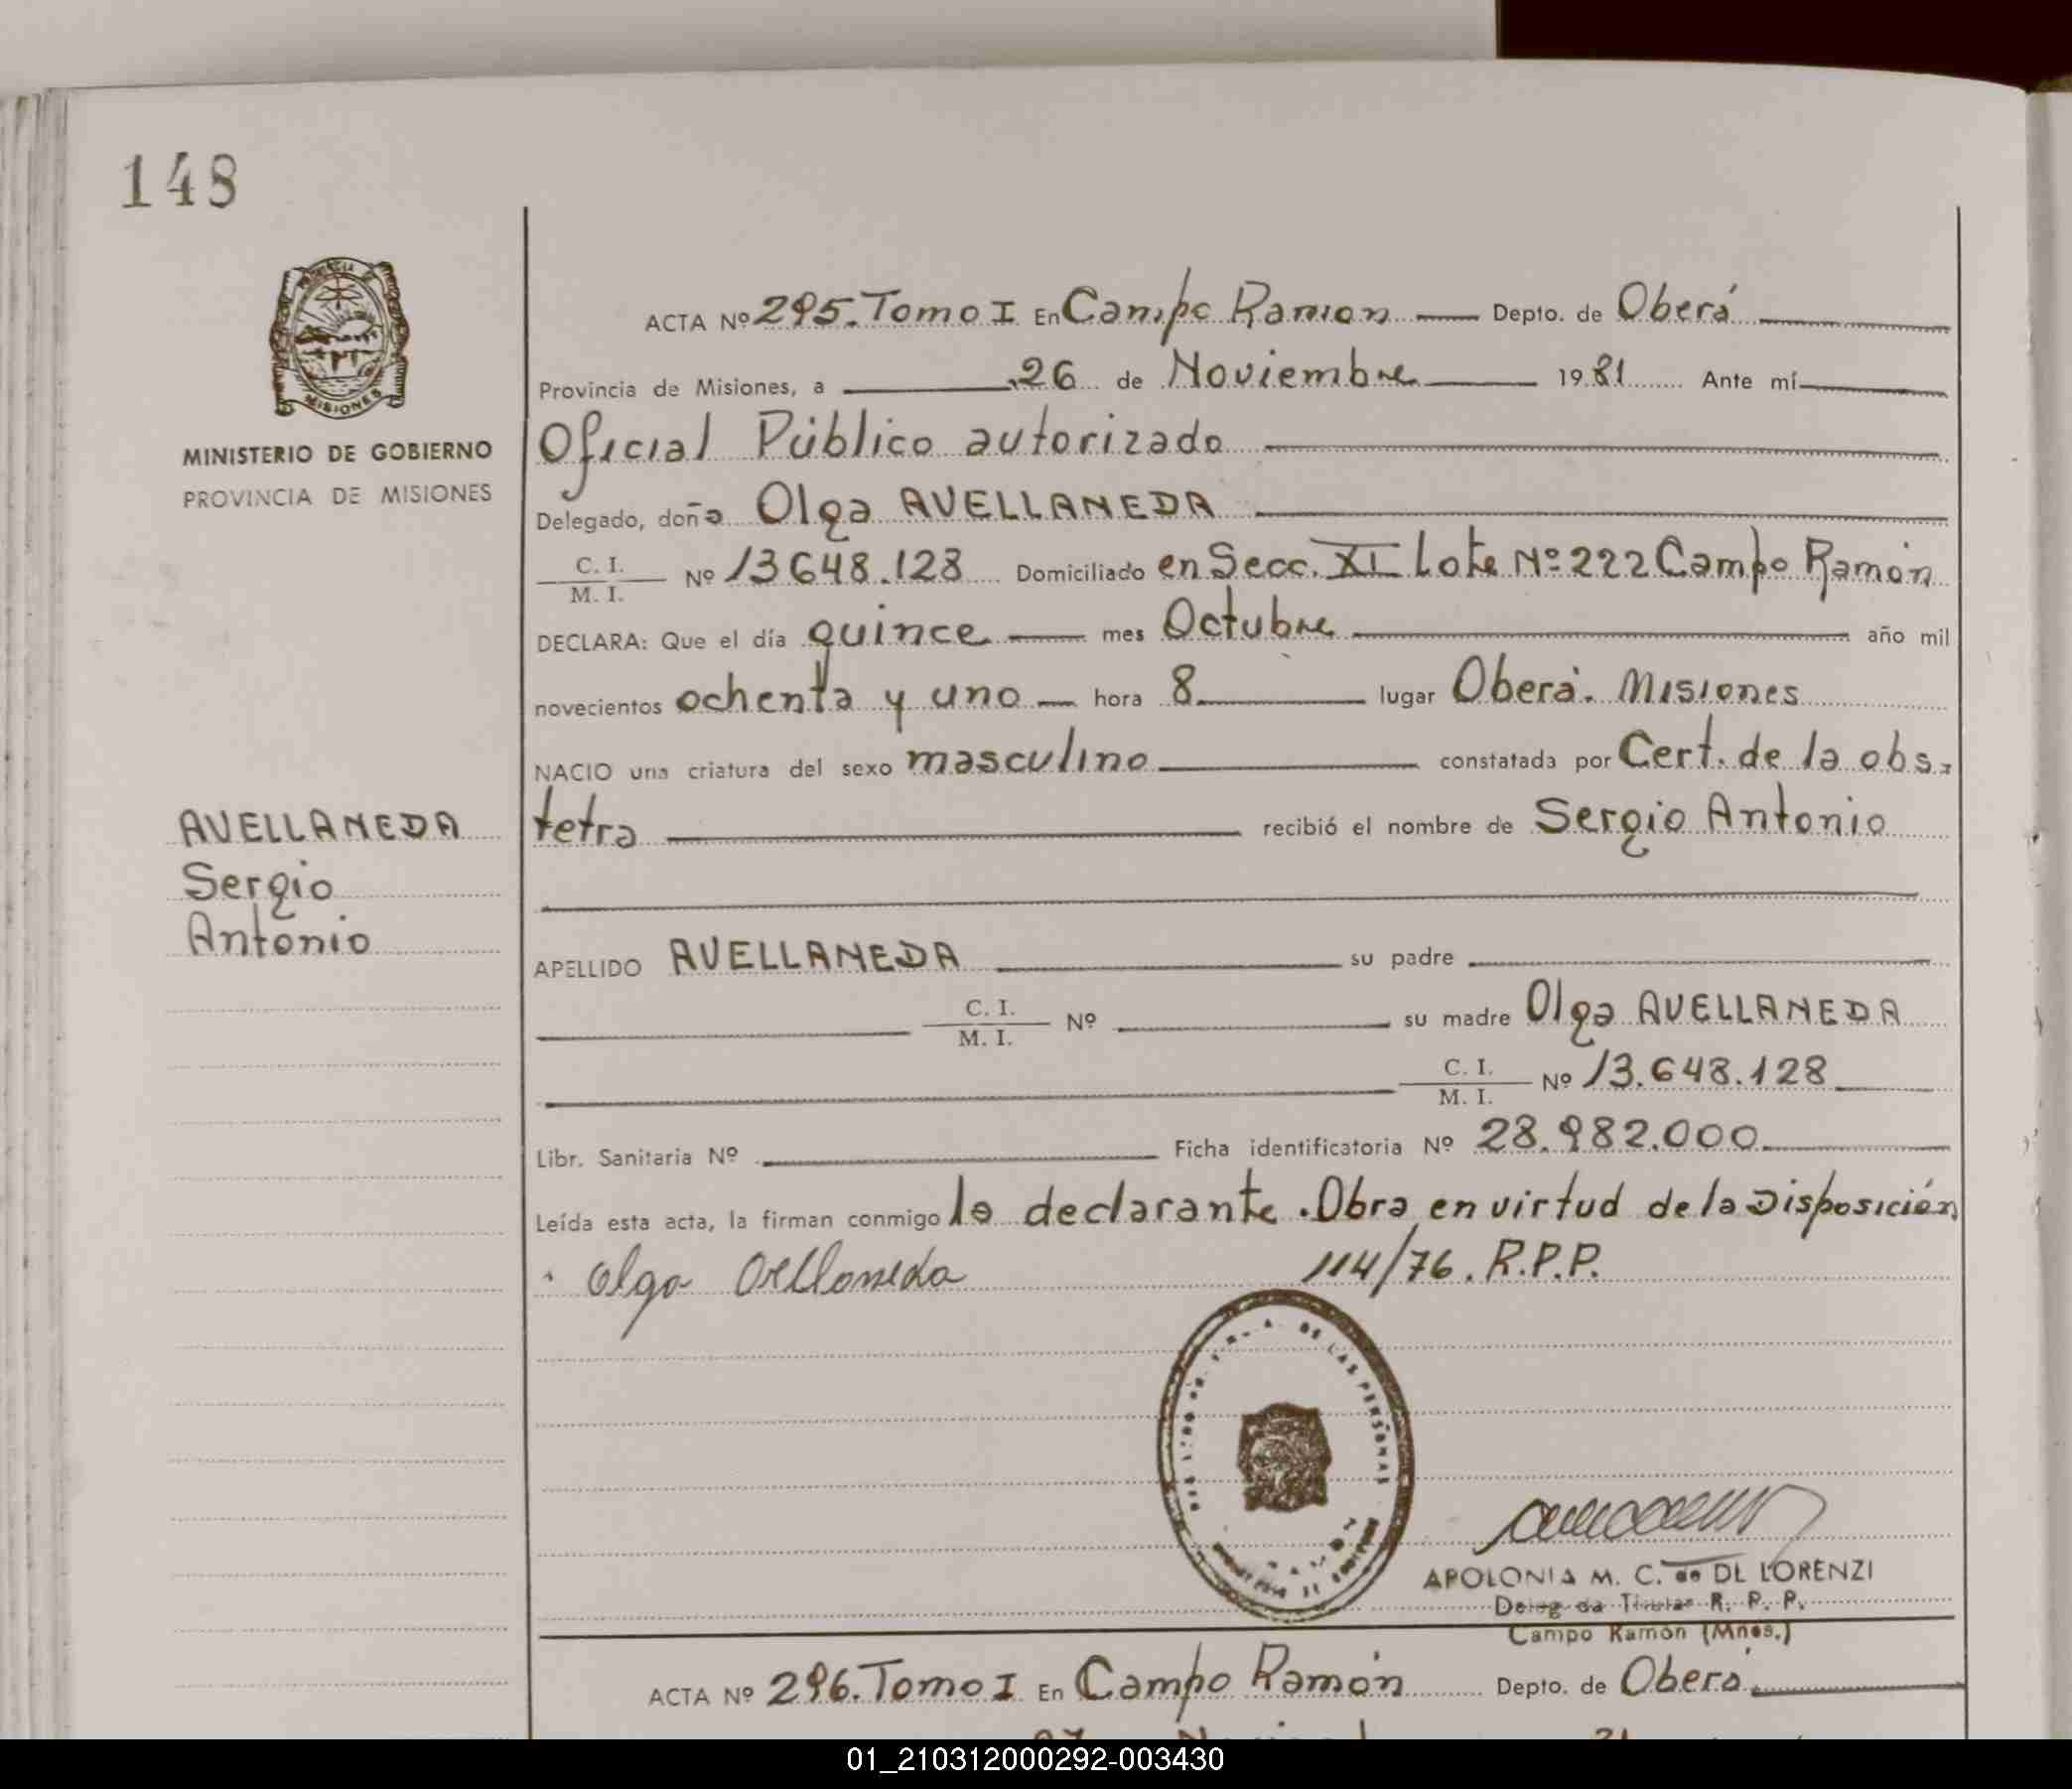 148
MINISTERIO DE GOBIERNO
PROVINCIA DE MISIONES
MISIONES
ACTA Nº 295. Tomo I En Campo Ramón Depto. de Oberá
Provincia de Misiones, a 26 de Noviembre 1981 Ante mí
Oficial Público autorizado
Delegado, doña Olga AVELLANEDA
C. I.
M. I. Nº 13648.128 Domiciliado en Secc. XI Lote Nº 222 Campo Ramón
DECLARA: Que el día quince mes Octubre año mil
novecientos ochenta y uno hora 8 lugar Oberá. Misiones
NACIO una criatura del sexo masculino constatada por Cert. de la obs-
tetra recibió el nombre de Sergio Antonio
AVELLANEDA
Sergio
Antonio
APELLIDO AVELLANEDA su padre
C. I.
M. I. Nº su madre Olga AVELLANEDA
C. I.
M. I. Nº 13.648.128
Libr. Sanitaria Nº Ficha identificatoria Nº 28.982.000
Leída esta acta, la firman conmigo la declarante. Obra en virtud de la Disposición
114/76. R.P.P.
Olga Avellaneda
DE LAS PERSONAS
APOLONIA M. C. de DE LORENZI
Delegada Titular R. P. P.
Campo Ramón (Mnes.)
ACTA Nº 296. Tomo I En Campo Ramón Depto. de Oberá
01_210312000292-003430